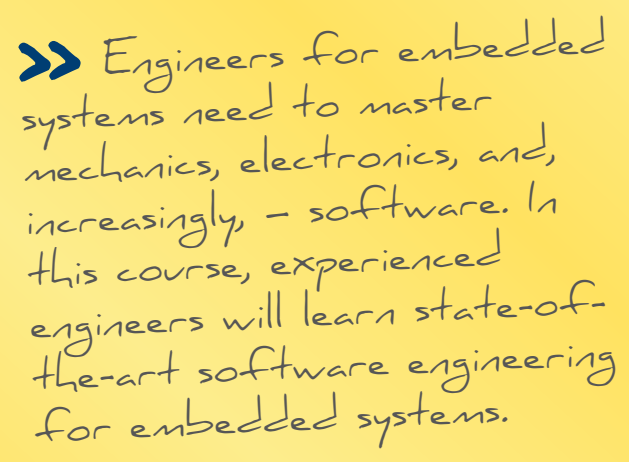 » Engineers for embedded
systems need to master
mechanics, electronics, and,
increasingly, – software. In
this course, experienced
engineers will learn state-of-
the-art software engineering
for embedded systems.